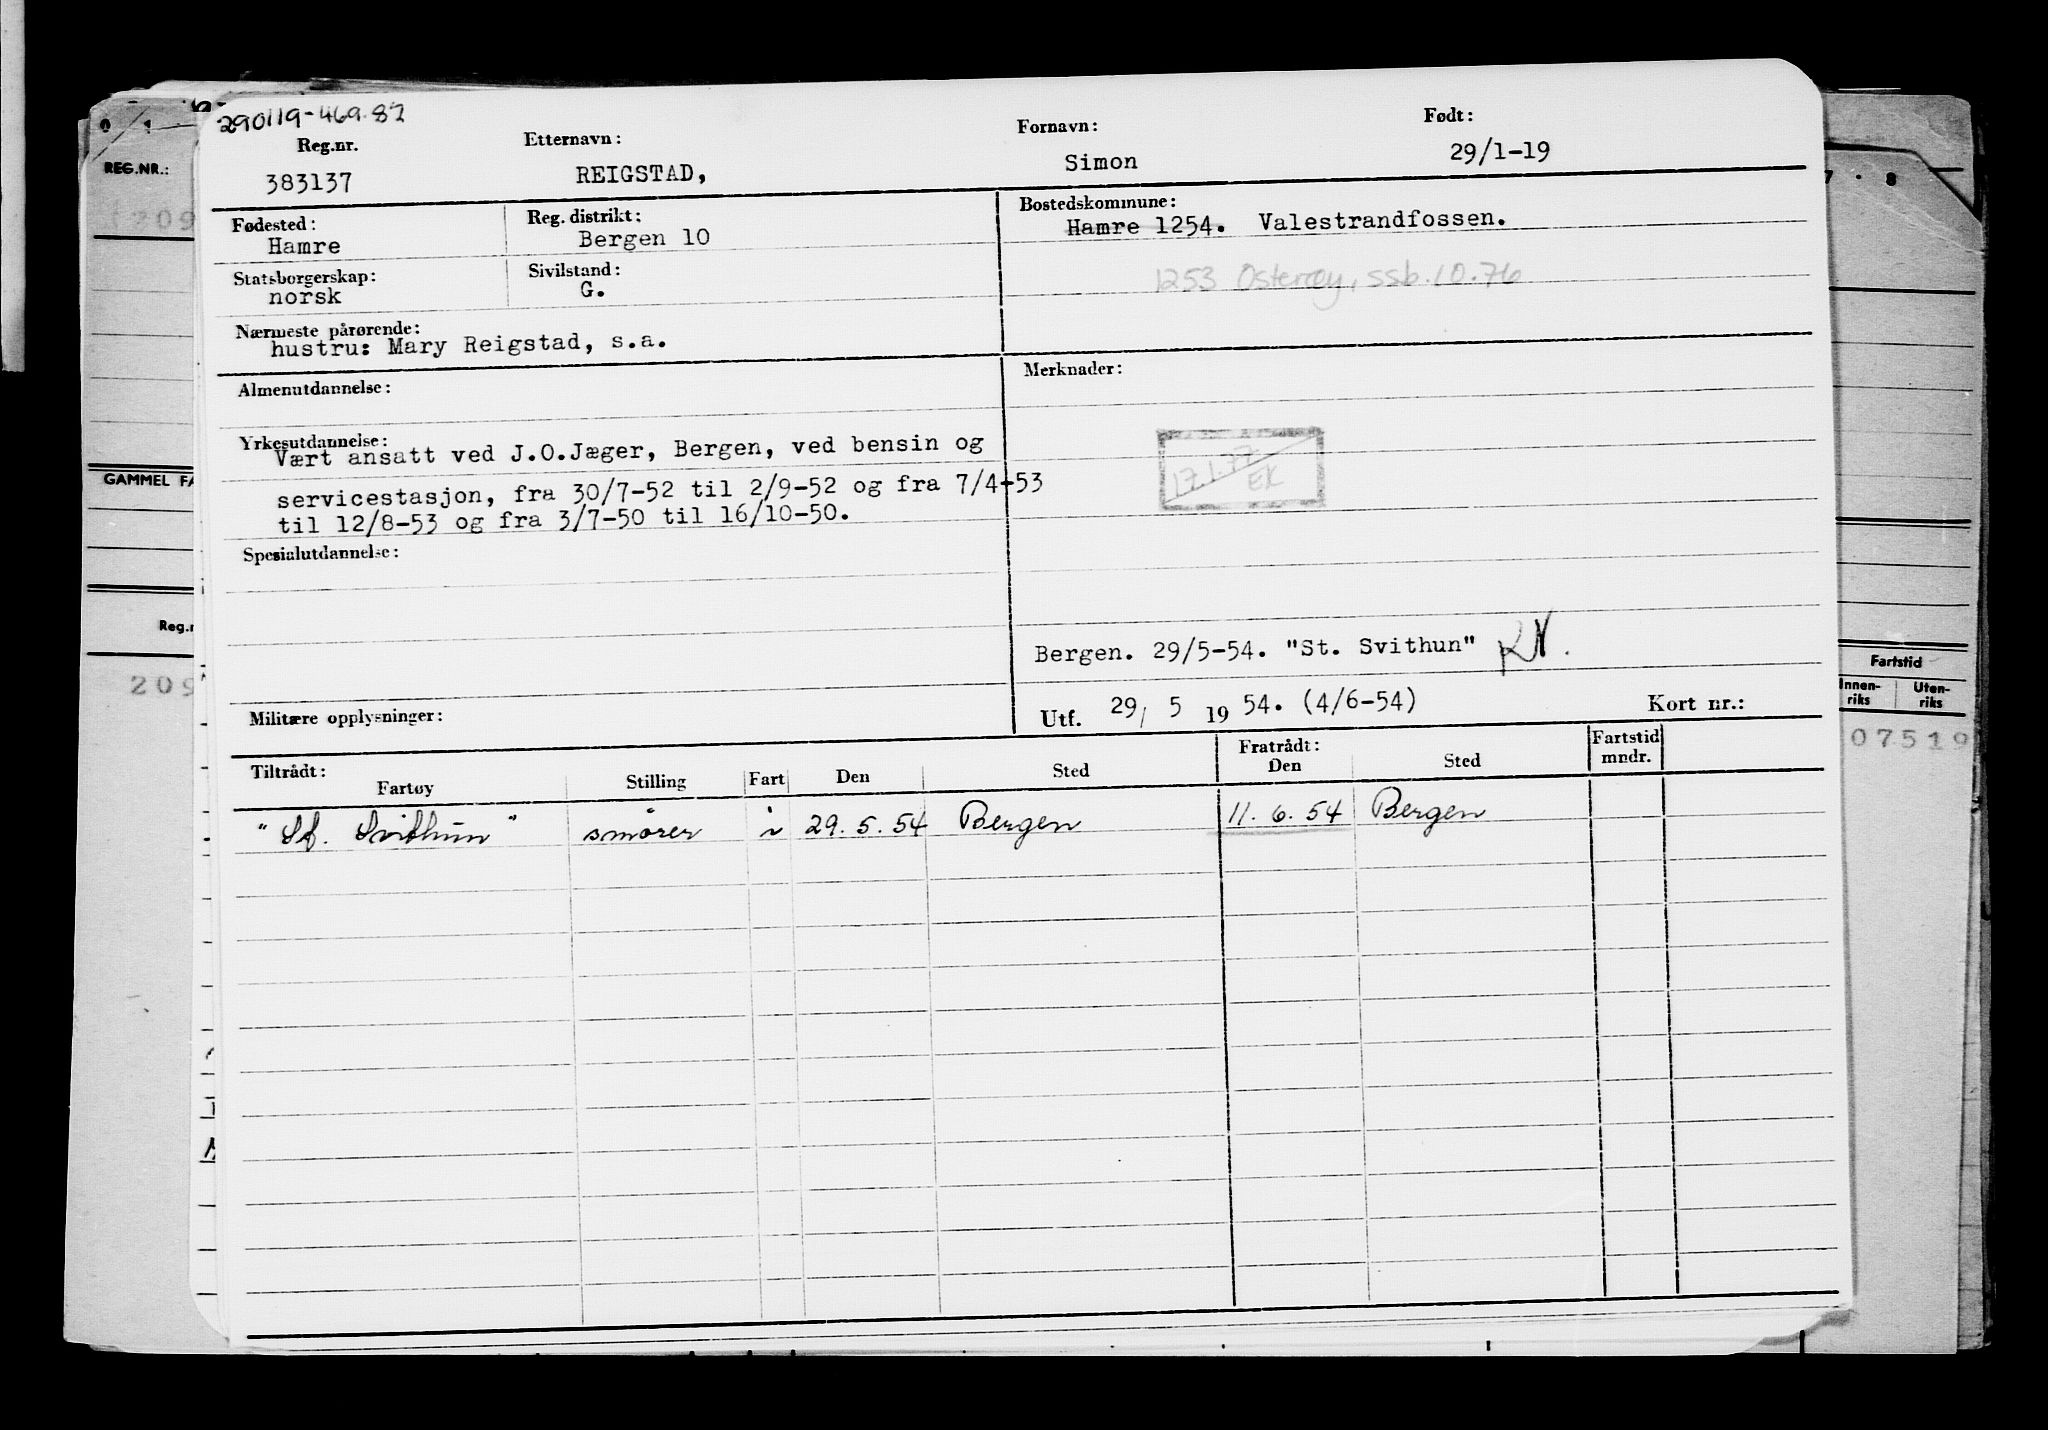 290119-469.87
Reg.nr. Etternavn: Fornavn: Født:
383137 REIGSTAD, Simon 29/1-19
Fødested: Reg. distrikt: Bostedskommune:
Hamre Bergen 10 Hamre 1254. Valestrandfossen.
Statsborgerskap: Sivilstand:
norsk G. 1253 Osterøy, ssb. 10.76
Nærmeste pårørende:
hustru: Mary Reigstad, s.a.
Almenutdannelse: Merknader:
Yrkesutdannelse:
Vært ansatt ved J.O.Jæger, Bergen, ved bensin og
servicestasjon, fra 30/7-52 til 2/9-52 og fra 7/4-53
til 12/8-53 og fra 3/7-50 til 16/10-50.
17.1.77
EK
Spesialutdannelse:
Bergen. 29/5-54. "St. Svithun"
Militære opplysninger: Utf. 29/ 5 19 54. (4/6-54) Kort nr.:
Tiltrådt: Fratrådt: Fartstid
Fartøy Stilling Fart Den Sted Den Sted mndr.
"St. Svithun" smører i 29.5.54 Bergen 11.6.54 Bergen
REG.NR.:
209
GAMMEL FA
Reg.n
209
7 . 8
Fartstid
Innen-riks Uten-riks
07519